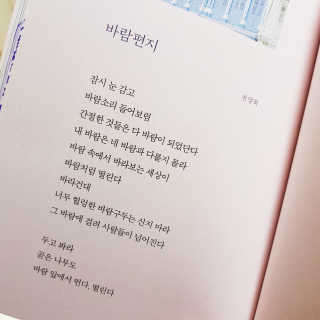 바람편지
천양희
잠시 눈 감고
바람소리 들어보렴
간절한 것들은 다 바람이 되었단다
내 바람은 네 바람과 다를지 몰라
바람 속에서 바라보는 세상이
바람처럼 떨린다
바라건대
너무 헐렁한 바람구두는 신지 마라
그 바람에 걸려 사람들이 넘어진다
두고 봐라
곧은 나무도
바람 앞에서 떤다, 떨린다